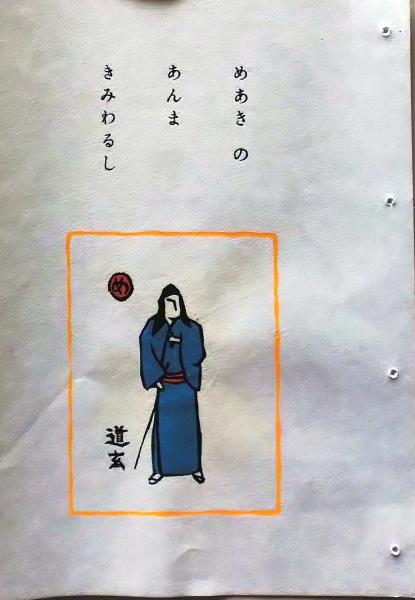 めあき の
あんま
きみわるし
め
道玄